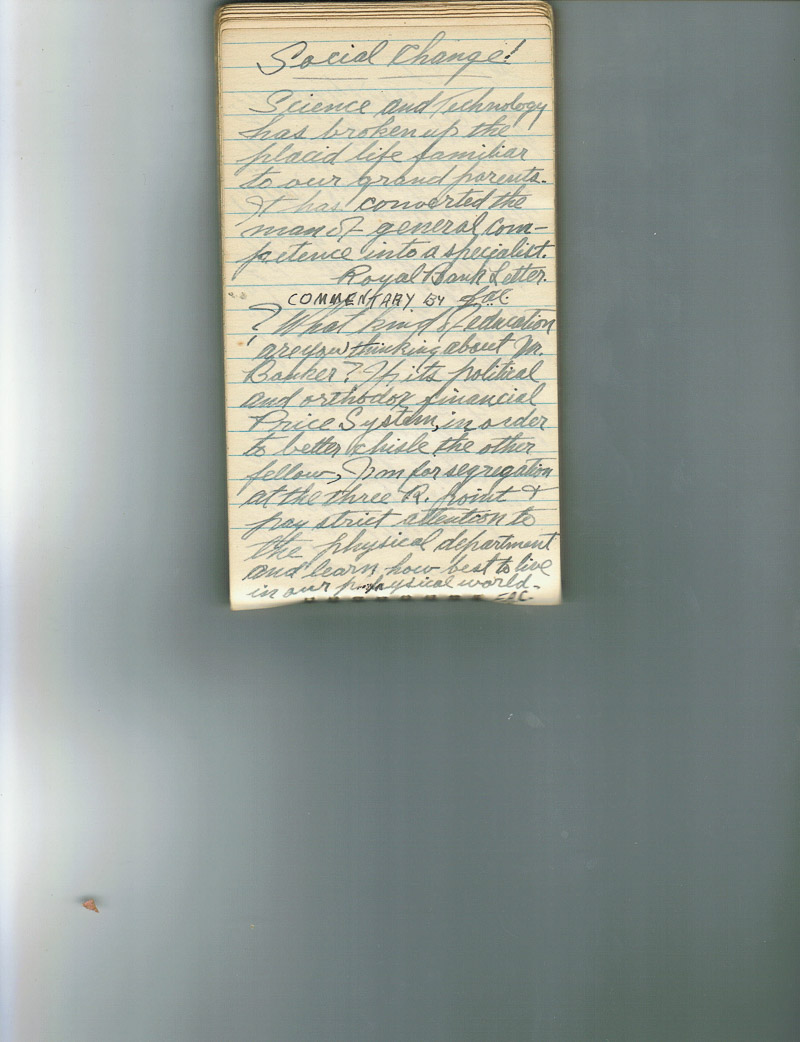 Social Change!
Science and Technology
has broken up the
placid life familiar
to our grand parents.
It has converted the
man of general com-
petence into a specialist.
Royal Bank Letter.
COMMENTARY BY
? What kind of education
are you thinking about Mr.
Banker? If its political
and orthodox financial
Price System, in order
to better chisle the other
fellow, I'm for segregation
at the three R. point &
pay strict attention to
the physical department
and learn how best to live
in our physical world-